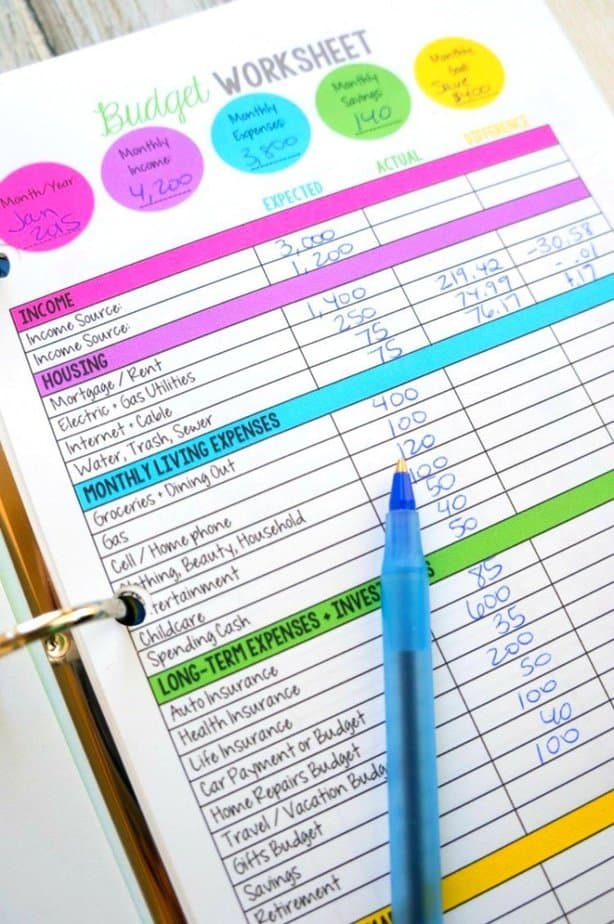 Budget WORKSHEET
Month/Year
Jan
2015
Monthly
Income
4,200
Monthly
Expenses
3,800
Monthly
Savings
140
Monthly
Goal
Save
$400
EXPECTED ACTUAL DIFFERENCE
INCOME
Income Source: 3,000
Income Source: 1,200
HOUSING
Mortgage / Rent 1,400
Electric + Gas Utilities 250 219.42 -30.58
Internet + Cable 75 74.99 -.01
Water, Trash, Sewer 75 76.17 1.17
MONTHLY LIVING EXPENSES
Groceries + Dining Out 400
Gas 100
Cell / Home phone 120
Clothing, Beauty, Household 100
Entertainment 50
Childcare 40
Spending Cash 50
LONG-TERM EXPENSES +
Auto Insurance 85
Health Insurance 600
Life Insurance 35
Car Payment or Budget 200
Home Repairs Budget 50
Travel / Vacation Budg 100
Gifts Budget 40
Savings 100
Retirement